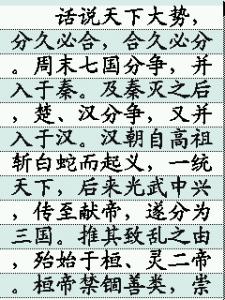 话说天下大势，
分久必合，合久必分
。周末七国分争，并
入于秦。及秦灭之后
，楚、汉分争，又并
入于汉。汉朝自高祖
斩白蛇而起义，一统
天下，后来光武中兴
，传至献帝，遂分为
三国。推其致乱之由
，殆始于桓、灵二帝
。桓帝禁锢善类，崇